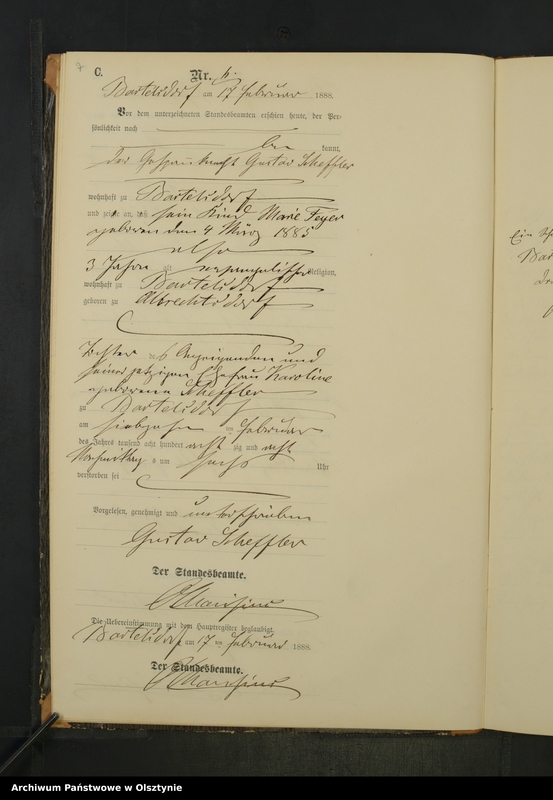 7
C.
Nr. 6.
Bartelsdorf am 17 Februar 1888.
Vor dem unterzeichneten Standesbeamten erschien heute, der Per-
sönlichkeit nach
be kannt,
der Gustav Scheffler
wohnhaft zu Bartelsdorf
und zeigte an, daß sein Kind Marie
geboren den 4 März 1885
also
3 Jahre alt evangelischer Religion,
wohnhaft zu Bartelsdorf
geboren zu Albrechtsdorf
Tochter des Anzeigenden und
seiner jetzigen Ehefrau Karoline
geborene Scheffler
zu Bartelsdorf
am siebzehn ten Februar
des Jahres tausend acht hundert acht zig und acht
Nachmittag s um sechs Uhr
verstorben sei
Vorgelesen, genehmigt und unterschrieben
Gustav Scheffler
Der Standesbeamte.
Die Uebereinstimmung mit dem Hauptregister beglaubigt.
Bartelsdorf am 17 ten Februar 1888.
Der Standesbeamte.
Ein
Archiwum Państwowe w Olsztynie